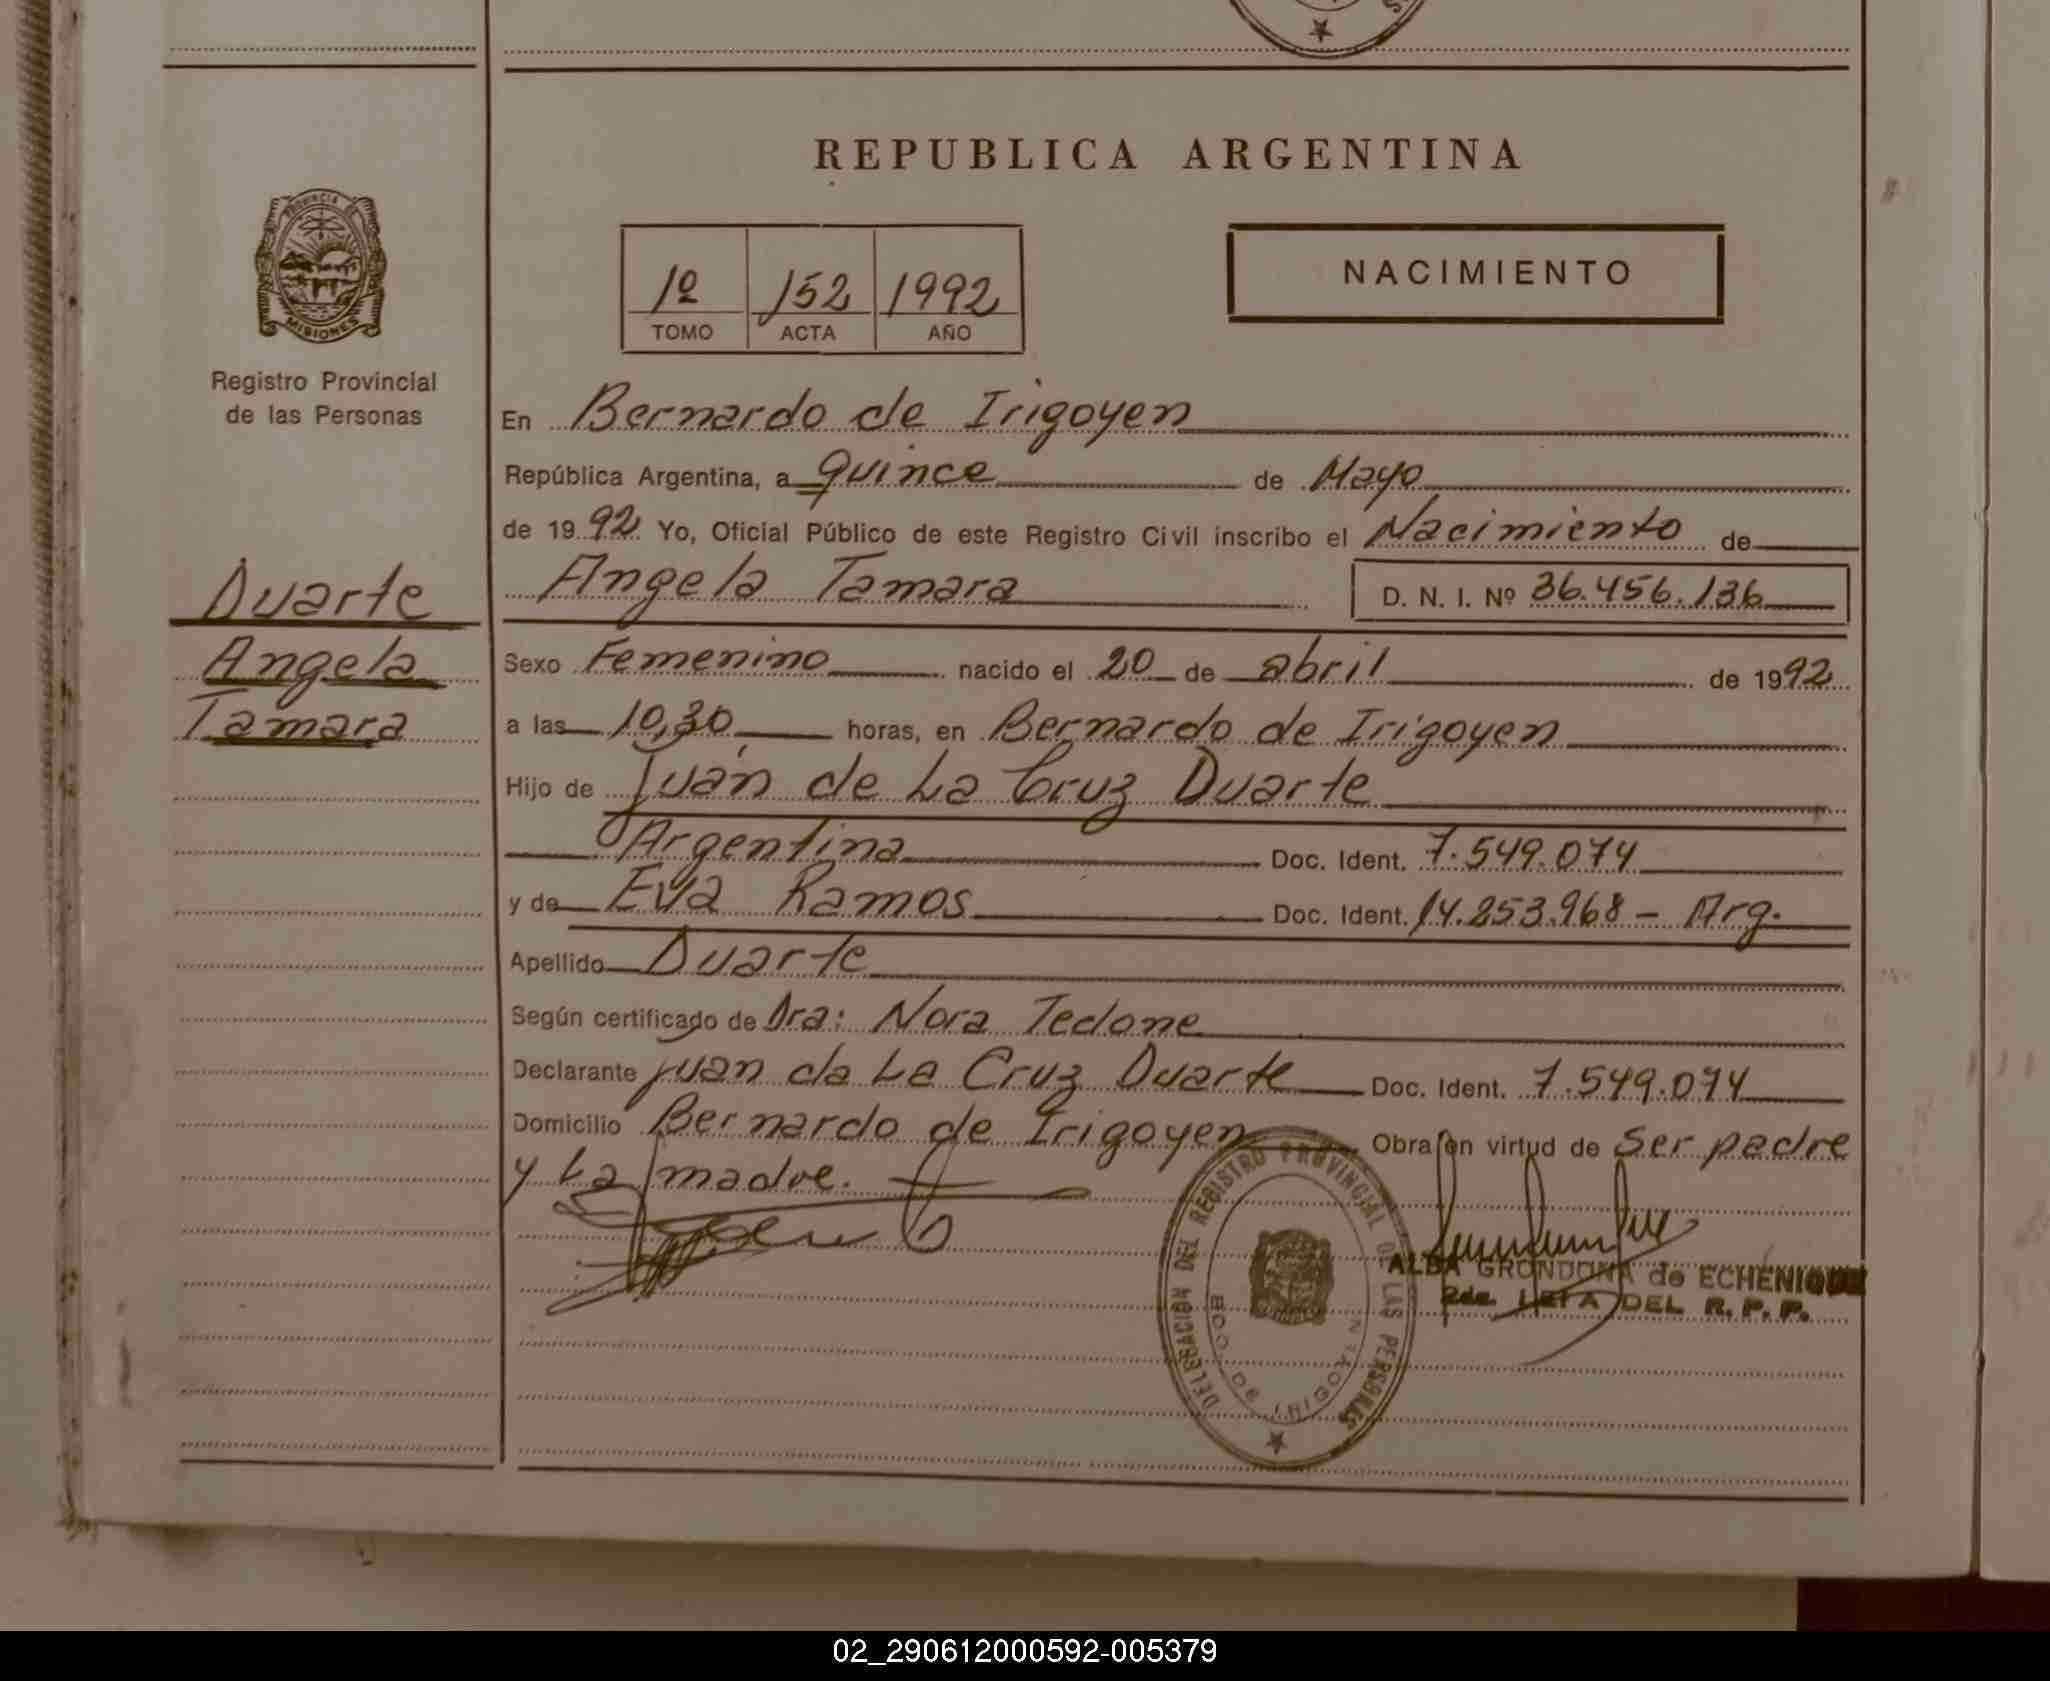 REPUBLICA ARGENTINA
PROVINCIA DE
MISIONES
Registro Provincial
de las Personas
Duarte
Angela
Tamara
1º 152 1992
TOMO ACTA AÑO
NACIMIENTO
En Bernardo de Irigoyen
República Argentina, a quince de Mayo
de 19 92 Yo, Oficial Público de este Registro Civil inscribo el Nacimiento de
Angela Tamara D. N. I. Nº 36.456.136
Sexo Femenino nacido el 20 de abril de 1992
a las 10,30 horas, en Bernardo de Irigoyen
Hijo de Juan de La Cruz Duarte
Argentina Doc. Ident. 7.549.074
y de Eva Ramos Doc. Ident. 14.253.968 - Arg.
Apellido Duarte
Según certificado de Dra: Nora Tedone
Declarante Juan da La Cruz Duarte Doc. Ident. 7.549.074
Domicilio Bernardo de Irigoyen Obra en virtud de ser padre
y La madre.
DELEGACION DEL REGISTRO PROVINCIAL DE LAS PERSONAS
BDO. DE IRIGOYEN
ALBA GRONDONA de ECHENIQUE
2da. JEFA DEL R. P. P.
02_290612000592-005379